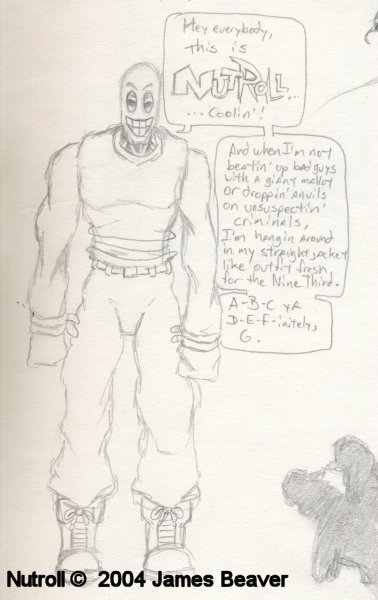 Hey everybody,
this is
NUTROLL...
...Coolin'!
And when I'm not
beatin' up bad guys
with a giant mallet
or droppin' anvils
on unsuspectin'
criminals,
I'm hangin around
in my straightjacket
like outfit fresh
for the Nine Third.
A-B-C ya
D-E-F-initely,
G.
Nutroll © 2004 James Beaver